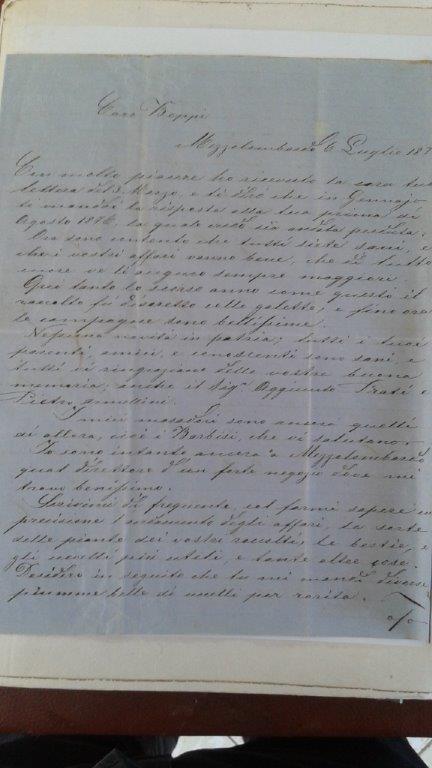 Caro Beppi
Mezzolombardo 6 Luglio 187
Con molto piacere ho ricevuto la cara tua
lettera del 3 Marzo, e ti dirò che in Gennajo
ti mandai la risposta alla tua prima di
Agosto 1876, la quale sarà andata perduta.
Ora sono contento che tutti siete sani, e
che i vostri affari vanno bene, che di tutto
cuore ve li auguro sempre maggiori.
Qui tanto lo scorso anno come questo il
raccolto fu discreto colle galette, e fino ora
le campagne sono bellissime.
Nessuna novità in patria; tutti i tuoi
parenti, amici, e conoscenti sono sani, e
tutti vi ringraziano della vostra buona
memoria; anche il Sigr Aggiunto Prati e
Pietro
I miei sono ancora quelli
di allora, cioè i Barbisi, che vi salutano.
Io sono intanto ancora a Mezzolombardo
qual direttore d'un forte negozio dove mi
trovo benissimo.
Scrivimi di frequente, col farmi sapere con
precisione l'andamento degli affari, la sorte
delle piante dei vostri raccolti, le bestie, e
gli uccelli più utili, e tante altre cose.
Desidero in seguito che tu mi mandi diverse
piumme belle di uccelli per rarità.